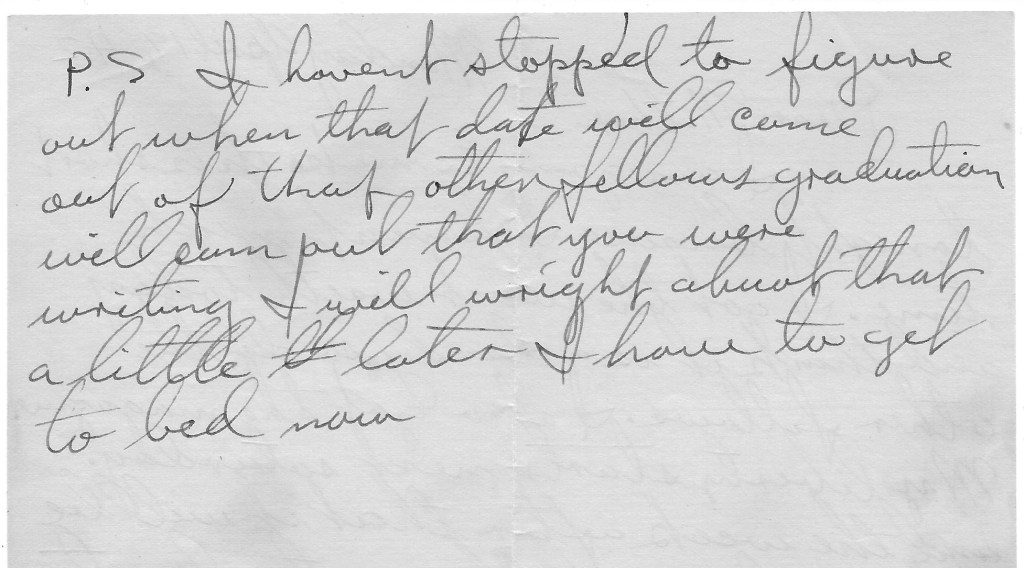 P.S I havent stopped to figure
out when that date will come
out of that other fellows graduation
will cum put that you were
writing I will wright about that
a little later I have to get
to bed now